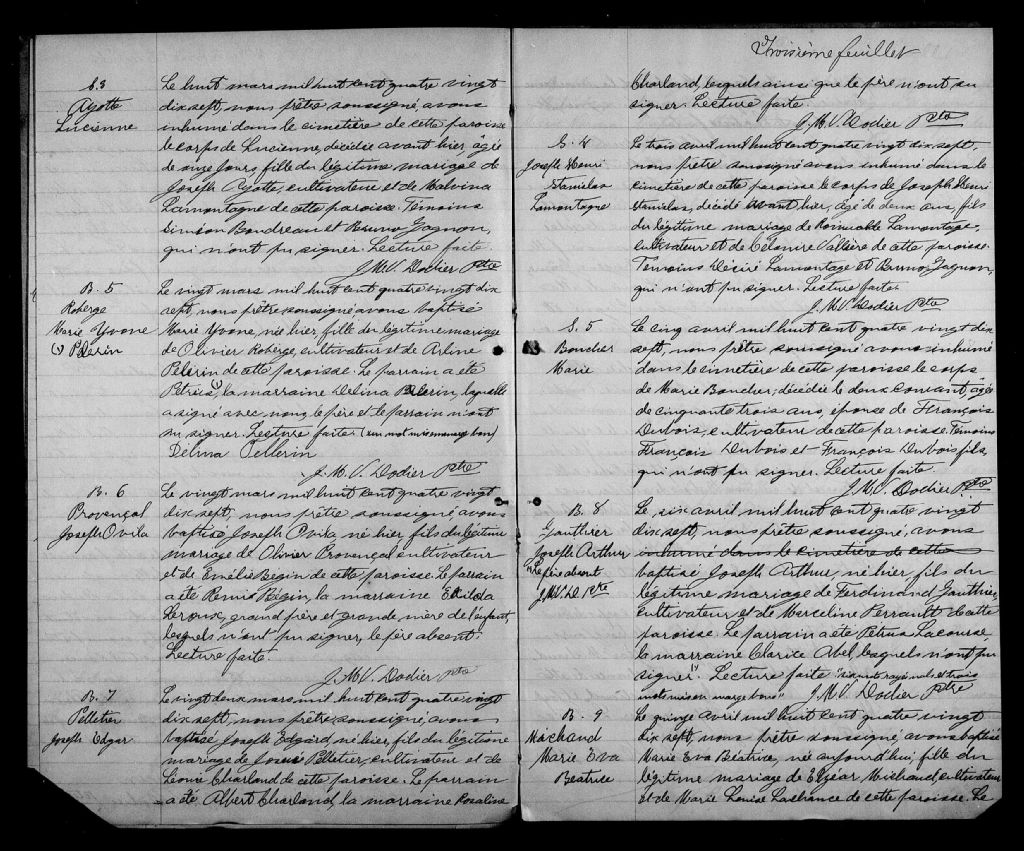 S.3
Ayotte
Lucienne
Le huit mars mil huit cent quatre vingt
dix sept, nous prêtre soussigné, avons
inhumé dans le cimetière de cette paroisse
le corps de Lucienne, décédée avant hier, âgée
de jours, fille du légitime mariage de
Joseph Ayotte, cultivateur et de Malvina
Lamontagne de cette paroisse. Témoins
Siméon Boudreau et Bruno Gagnon,
qui n'ont pu signer. Lecture faite.
J.M.V. Dodier Ptre
B. 5
Roberge
Marie Yvone
(v) Pelerin
Le vingt mars mil huit cent quatre vingt dix
sept, nous prêtre soussigné avons baptisé
Marie Yvone, née hier, fille du légitime mariage
de Olivier Roberge, cultivateur et de Arline
Pelerin de cette paroisse. Le parrain a été
(v) la marraine Delina Pelerin, laquelle
a signé avec nous, le père et le parrain n'ont
su signer. Lecture faite. (un mot mis en marge bon)
Delina Pellerin
J.M.V. Dodier Ptre
B. 6
Provençal
Joseph Ovila
Le vingt mars mil huit cent quatre vingt
dix sept, nous prêtre soussigné avons
baptisé Joseph Ovila, né hier, fils du légitime
mariage de Olivier Provençal cultivateur
et de Emélie Begin de cette paroisse. Le parrain
a été Remie Bégin, la marraine Exilda
Leroux, grand père et grande mère de l'enfant,
lesquels n'ont pu signer, le père absent.
Lecture faite.
J.M.V. Dodier Ptre
B. 7
Pelletier
Joseph Edgar
Le vingt deux mars mil huit cent quatre vingt
dix sept, nous prêtre soussigné avons
baptisé Joseph Edgard, né hier, fils du légitime
mariage de Josué Pelletier, cultivateur et de
Léonie Charland de cette paroisse. Le parrain
a été Albert Charland, la marraine Rosaline
Troisième feuillet
Charland, lesquels ainsi que le père n'ont su
signer. Lecture faite.
J.M.V. Dodier Ptre
S. 4
Joseph Henri
Stanislas
Lamontagne
Le trois avril mil huit cent quatre vingt dix sept,
nous prêtre soussigné avons inhumé dans le
cimetière de cette paroisse le corps de Joseph Henri
Stanislas, décédé avant hier, âgé de deux ans, fils
du légitime mariage de Romuald Lamontagne,
cultivateur et de Célanire Vallière de cette paroisse.
Témoins Désiré Lamontagne et Bruno Gagnon,
qui n'ont pu signer. Lecture faite.
J.M.V. Dodier Ptre
S. 5
Boucher
Marie
Le cinq avril mil huit cent quatre vingt dix
sept, nous prêtre soussigné avons inhumé
dans le cimetière de cette paroisse le corps
de Marie Boucher, décédée le deux courant, âgée
de cinquante trois ans, épouse de François
Dubois, cultivateur de cette paroisse. Témoins
François Dubois et François Dubois fils,
qui n'ont pu signer. Lecture faite.
J.M.V. Dodier Ptre
B. 8
Gauthier
Joseph Arthur
Le
père absent
J.M.V.D. Ptre
Le, six avril mil huit cent quatre vingt
dix sept, nous prêtre soussigné, avons
inhumé dans le cimetière de cette
baptisé Joseph Arthur, né hier, fils du
légitime mariage de Ferdinand Gauthier,
cultivateur et de Marceline Perrault de cette
paroisse. Le parrain a été Petrus Lacourse,
la marraine Clarice Abel, lesquels n'ont pu
signer. Lecture faite "six mots rayés nuls et trois
mots mis en marge bons" J.M.V. Dodier Ptre
B. 9
Michaud
Marie Eva
Béatrice
Le quinze avril mil huit cent quatre vingt
dix sept, nous prêtre soussigné, avons baptisé
Marie Eva Béatrice, née aujourd'hui, fille du
légitime mariage de Elzéar Michaud, cultivateur
et de Marie Louise Lafrance de cette paroisse. Le